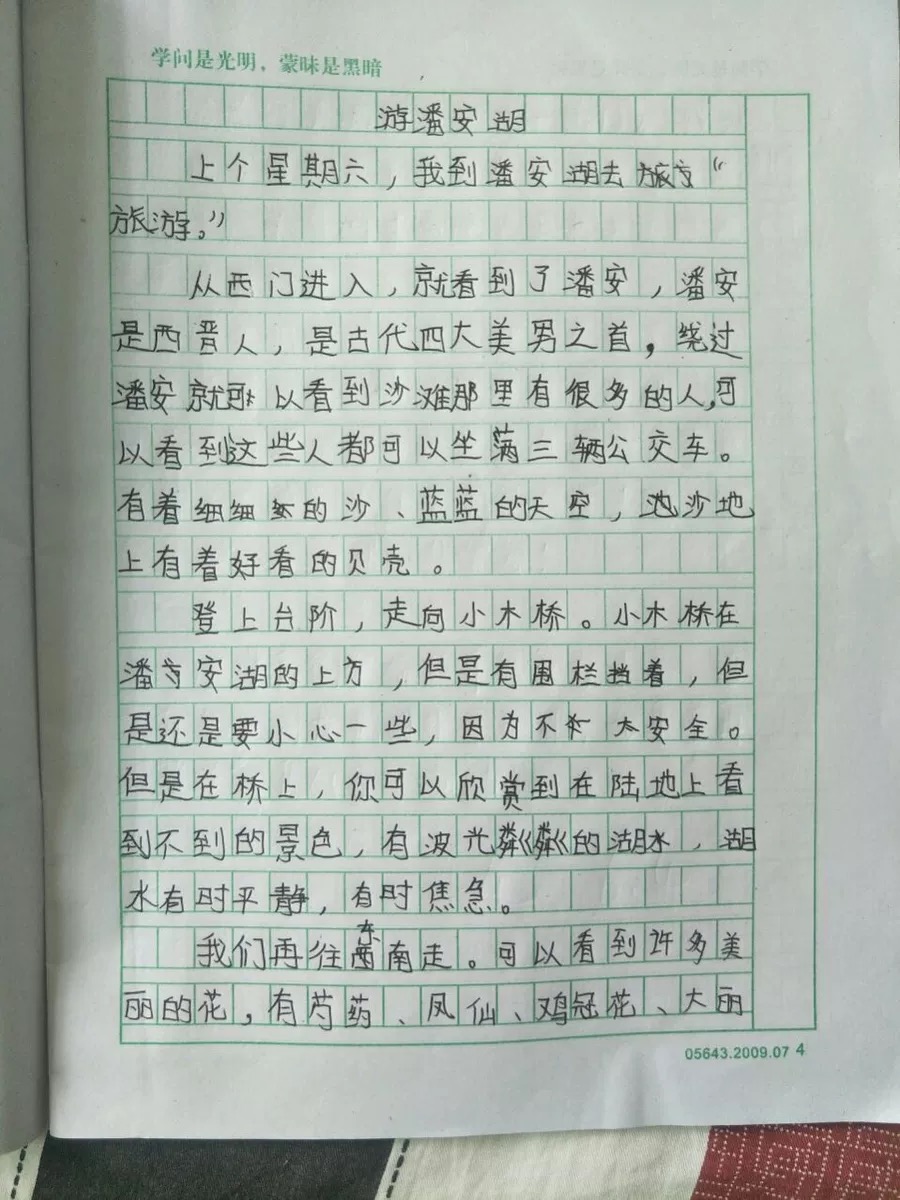 学问是光明，蒙昧是黑暗
游潘安湖
上个星期六，我到潘安湖去旅方“
旅游。”
从西门进入，就看到了潘安，潘安
是西晋人，是古代四大美男之首，绕过
潘安就可以看到沙滩那里有很多的人,可
以看到这些人都可以坐满三辆公交车。
有着细细的沙、蓝蓝的天空，沙地
上有着好看的贝壳。
登上台阶，走向小木桥。小木桥在
潘安湖的上方，但是有围栏挡着，但
是还是要小心一些，因为不太安全。
但是在桥上，你可以欣赏到在陆地上看
到不到的景色，有波光粼粼的湖水，湖
水有时平静，有时焦急。
我们再往东南走。可以看到许多美
丽的花，有芍药、凤仙、鸡冠花、大丽
05643.2009.07 4